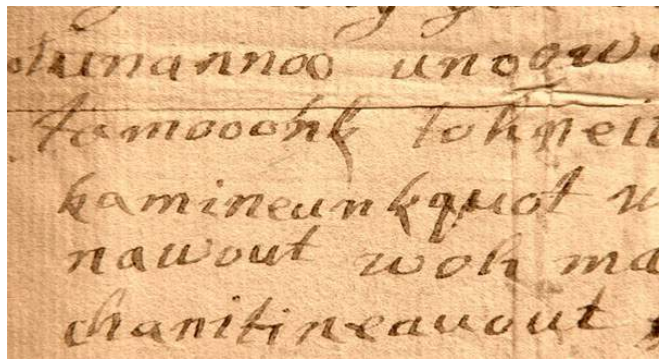 unannoo unoow
tamooohk tohnei
kamineunkquot
nawout woh ma
chanitineauout